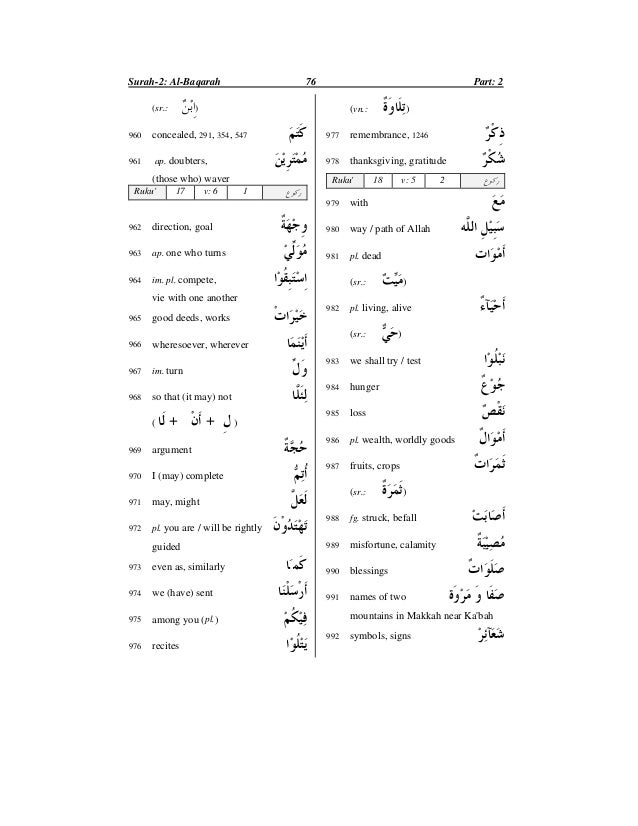 Surah-2: Al-Baqarah 76 Part: 2
(sr.: اِبْنٌ)
960 concealed, 291, 354, 547 كَتَمَ
961 ap. doubters, مُمْتَرِيْنَ
(those who) waver
Ruku' 17 v: 6 1 ركوع
962 direction, goal وِجْهَةٌ
963 ap. one who turns مُوَلِّيْ
964 im. pl. compete, اِسْتَبِقُوْا
vie with one another
965 good deeds, works خَيْرَاتْ
966 wheresoever, wherever أَيْنَمَا
967 im. turn وَلِّ
968 so that (it may) not لِئَلَّا
( لِ + أَنْ + لَا )
969 argument حُجَّةٌ
970 I (may) complete أُتِمُّ
971 may, might لَعَلَّ
972 pl. you are / will be rightly تَهْتَدُوْنَ
guided
973 even as, similarly كَمَا
974 we (have) sent أَرْسَلْنَا
975 among you (pl.) فِيْكُمْ
976 recites يَتْلُوْا
(vn.: تِلَاوَةٌ)
977 remembrance, 1246 ذِكْرٌ
978 thanksgiving, gratitude شُكْرٌ
Ruku' 18 v: 5 2 ركوع
979 with مَعَ
980 way / path of Allah سَبِيْلِ اللَّه
981 pl. dead أَمْوَات
(sr.: مَيِّتٌ)
982 pl. living, alive أَحْيَآءٌ
(sr.: حَيٌّ)
983 we shall try / test نَبْلُوْا
984 hunger جُوْعٌ
985 loss نَقْصٌ
986 pl. wealth, worldly goods أَمْوَالٌ
987 fruits, crops ثَمَرَاتٌ
(sr.: ثَمَرَةٌ)
988 fg. struck, befall أَصَابَتْ
989 misfortune, calamity مُصِيْبَةٌ
990 blessings صَلَوَاتٌ
991 names of two صَفَا وَ مَرْوَة
mountains in Makkah near Ka'bah
992 symbols, signs شَعَآئِرْ